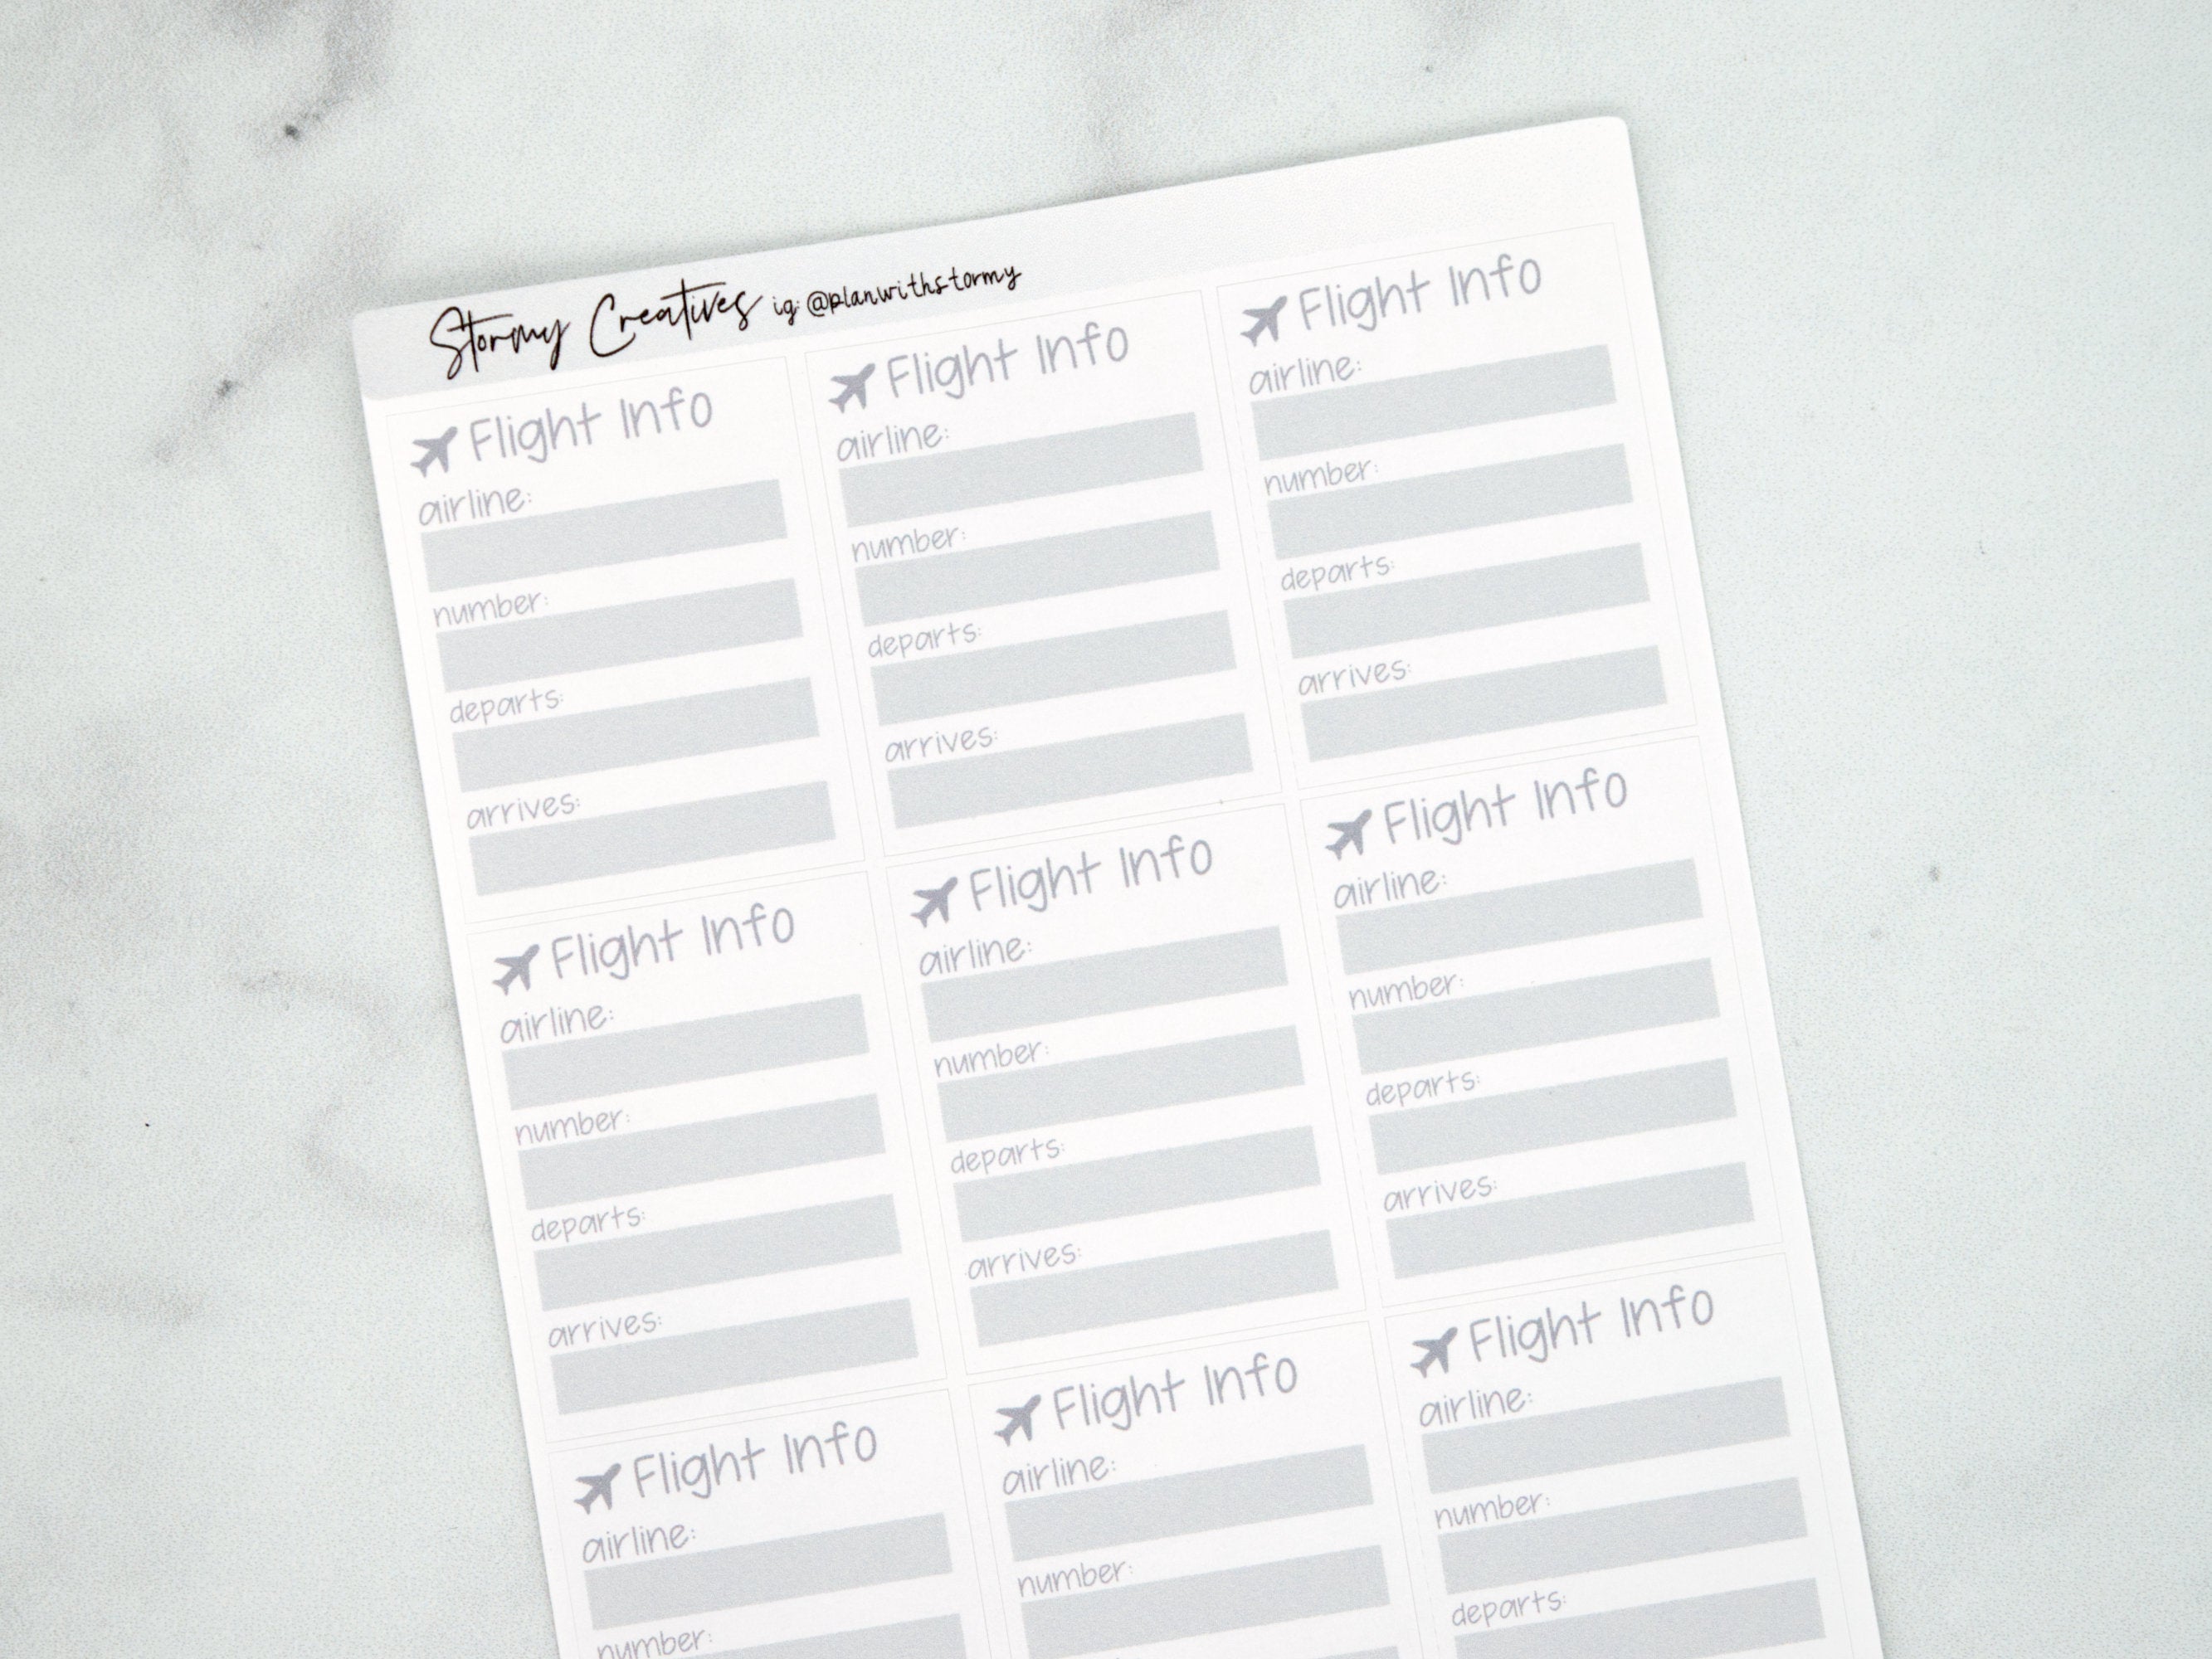 Stormy Creatives ig: @planwithstormy
Flight Info
airline:
number:
departs:
arrives:
Flight Info
airline:
number:
departs:
arrives:
Flight Info
airline:
number:
departs:
arrives:
Flight Info
airline:
number:
departs:
arrives:
Flight Info
airline:
number:
departs:
arrives:
Flight Info
airline:
number:
departs:
arrives:
Flight Info
airline:
number:
Flight Info
airline:
number:
Flight Info
airline:
number:
departs: